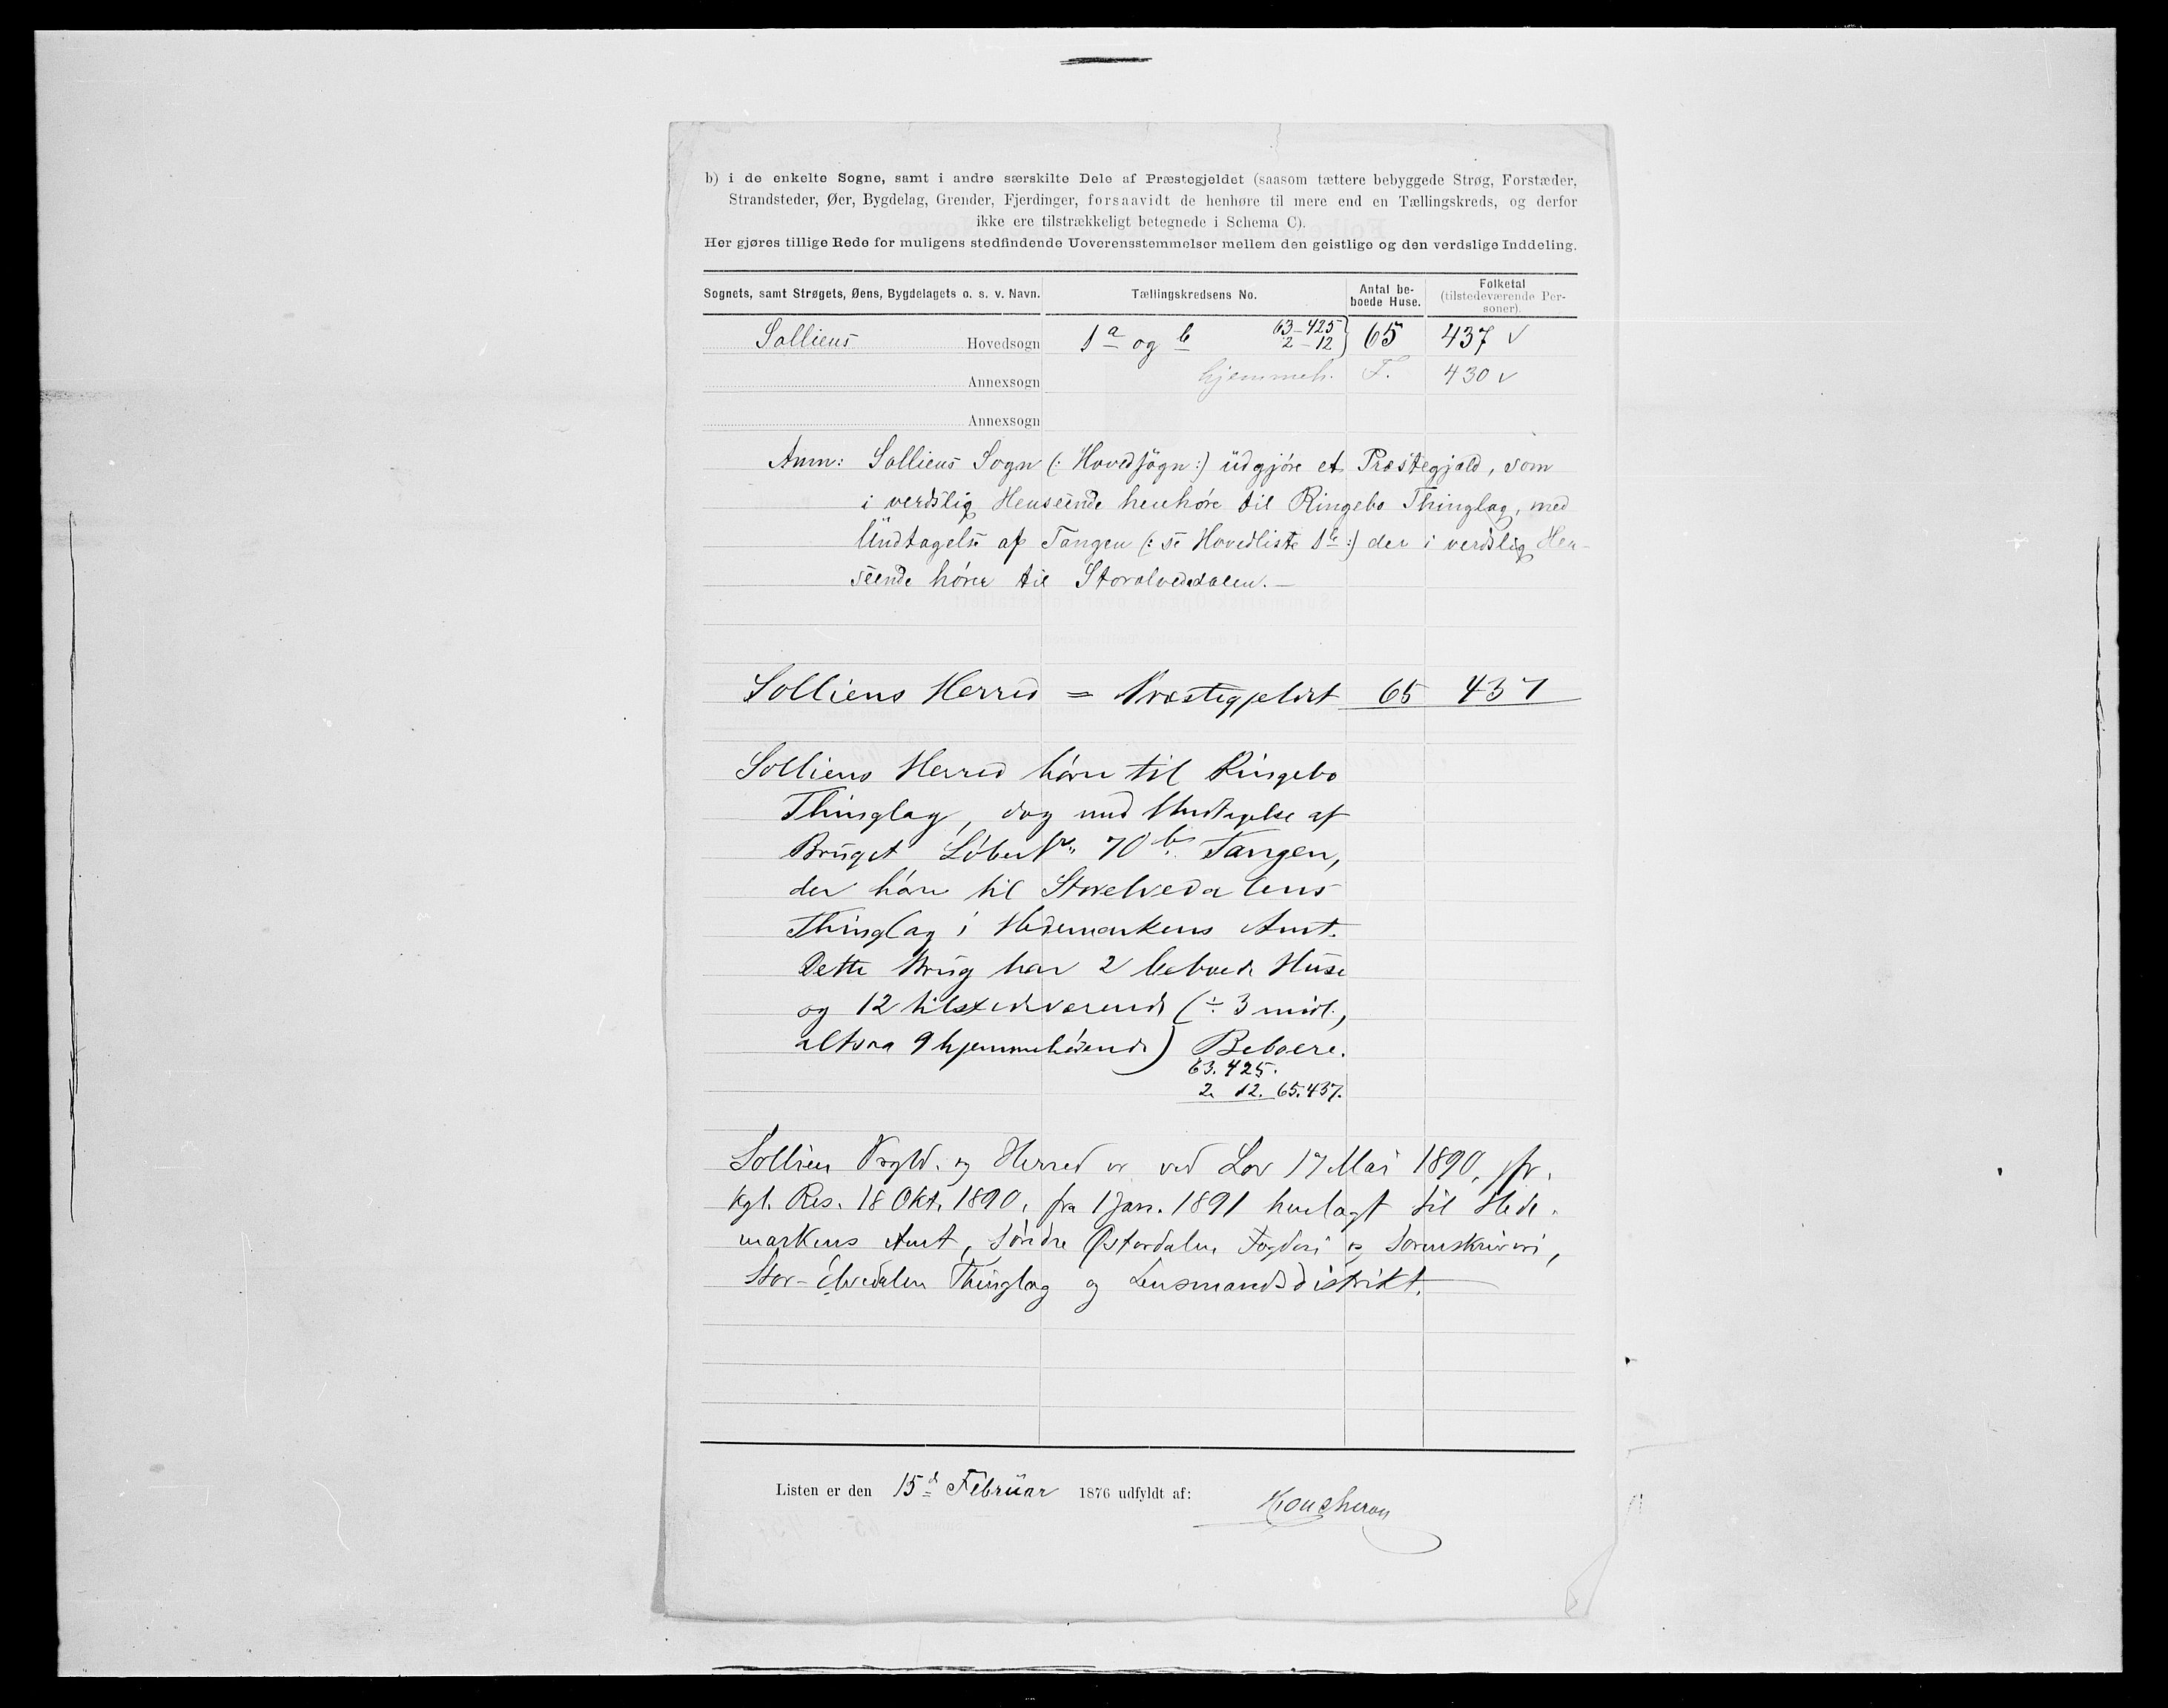 b) i de enkelte Sogne, samt i andre særskilte Dele af Præstegjeldet (saasom tættere bebyggede Strøg, Forstæder,
Strandsteder, Øer, Bygdelag, Grender, Fjerdinger, forsaavidt de henhøre til mere end en Tællingskreds, og derfor
ikke ere tilstrækkeligt betegnede i Schema C).
Her gjøres tillige Rede for muligens stedfindende Uoverensstemmelser mellem den geistlige og den verdslige Inddeling.
Sognets, samt Strøgets, Øens, Bygdelagets o. s. v. Navn. Tællingskredsens No. Antal be-boede Huse. Folketal (tilstedeværende Per-soner).
Solliens Hovedsogn 1a og b 63-425 2-12 } 65 437 ✓
Annexsogn hjemmeh. F. 430 ✓
Annexsogn
Anm: Solliens Sogn (: Hovedsogn :) udgjöre et Præstegjæld, som
i verdslig Henseende henhöre til Ringebo Thinglag, med
Undtagelse af Tangen (: se Hovedliste 1b :) der i verdslig Hen-
seende hörer til Storelvedalen. —
Solliens Herred = Præstegjeldet 65 437
Solliens Herred hører til Ringebo
Thinglag, dog med Undtagelse af
Bruget Løbe No. 70 b. Tangen,
der hører til Storelvedalens
Thinglag i Hedemarkens Amt.
Dette Brug har 2 beboede Huse
og 12 tilstedeværende (÷ 3 midl.,
altsaa 9 hjemmehørende) Beboere.
63. 425.
2. 12. 65. 437.
Sollien Prgld. og Herred er ved Lov 17 Mai 1890, jfr.
kgl. Res. 18 Okt. 1890, fra 1 Jan. 1891 henlagt til Hede-
markens Amt, Søndre Østerdalen Fogderi og Sorenskriveri,
Stor-Elvedalen Thinglag og Lensmandsdistrikt.
Listen er den 15d Februar 1876 udfyldt af: